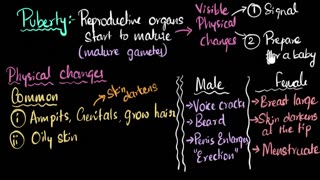 Puberty:- Reproductive organs
start to mature
(mature gametes)
Visible
Physical
changes
① Signal
② Prepare
for a baby
Physical changes
Common
Skin
darkens
ⓘ Armpits, Genitals, grow hair
ⓘⓘ Oily skin
Male
→ Voice cracks
→ Beard
→ Penis Enlarges
"Erection"
Female
→ Breast large
→ Skin darkens
at the tip
→ Menstruate